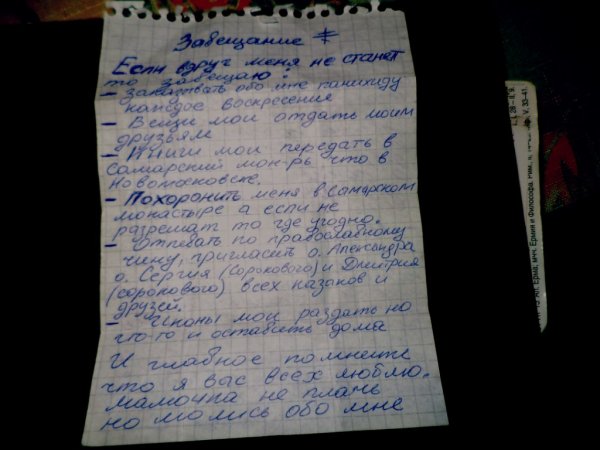 Завещание
Если вдруг меня не станет
то завещаю:
– заказывать обо мне панихиду
каждое воскресение
– Вещи мои отдать моим
друзьям
– Книги мои передать в
Самарский мон-рь что в
– Похоронить меня в Самарском
монастыре а если не
разрешат то где угодно.
– Отпевать по православному
чину, пригласить о. Александра
о. Сергия (Сорокового) и Дмитрия
(сорокового) всех казаков и
друзей.
– Иконы мои раздать но
что то и оставить дома
И главное помните
что я вас всех люблю.
мамочка не плачь
но молись обо мне
Ап. Ерма; мчч. Ермия и Философа. Рим.
V, 33–41.